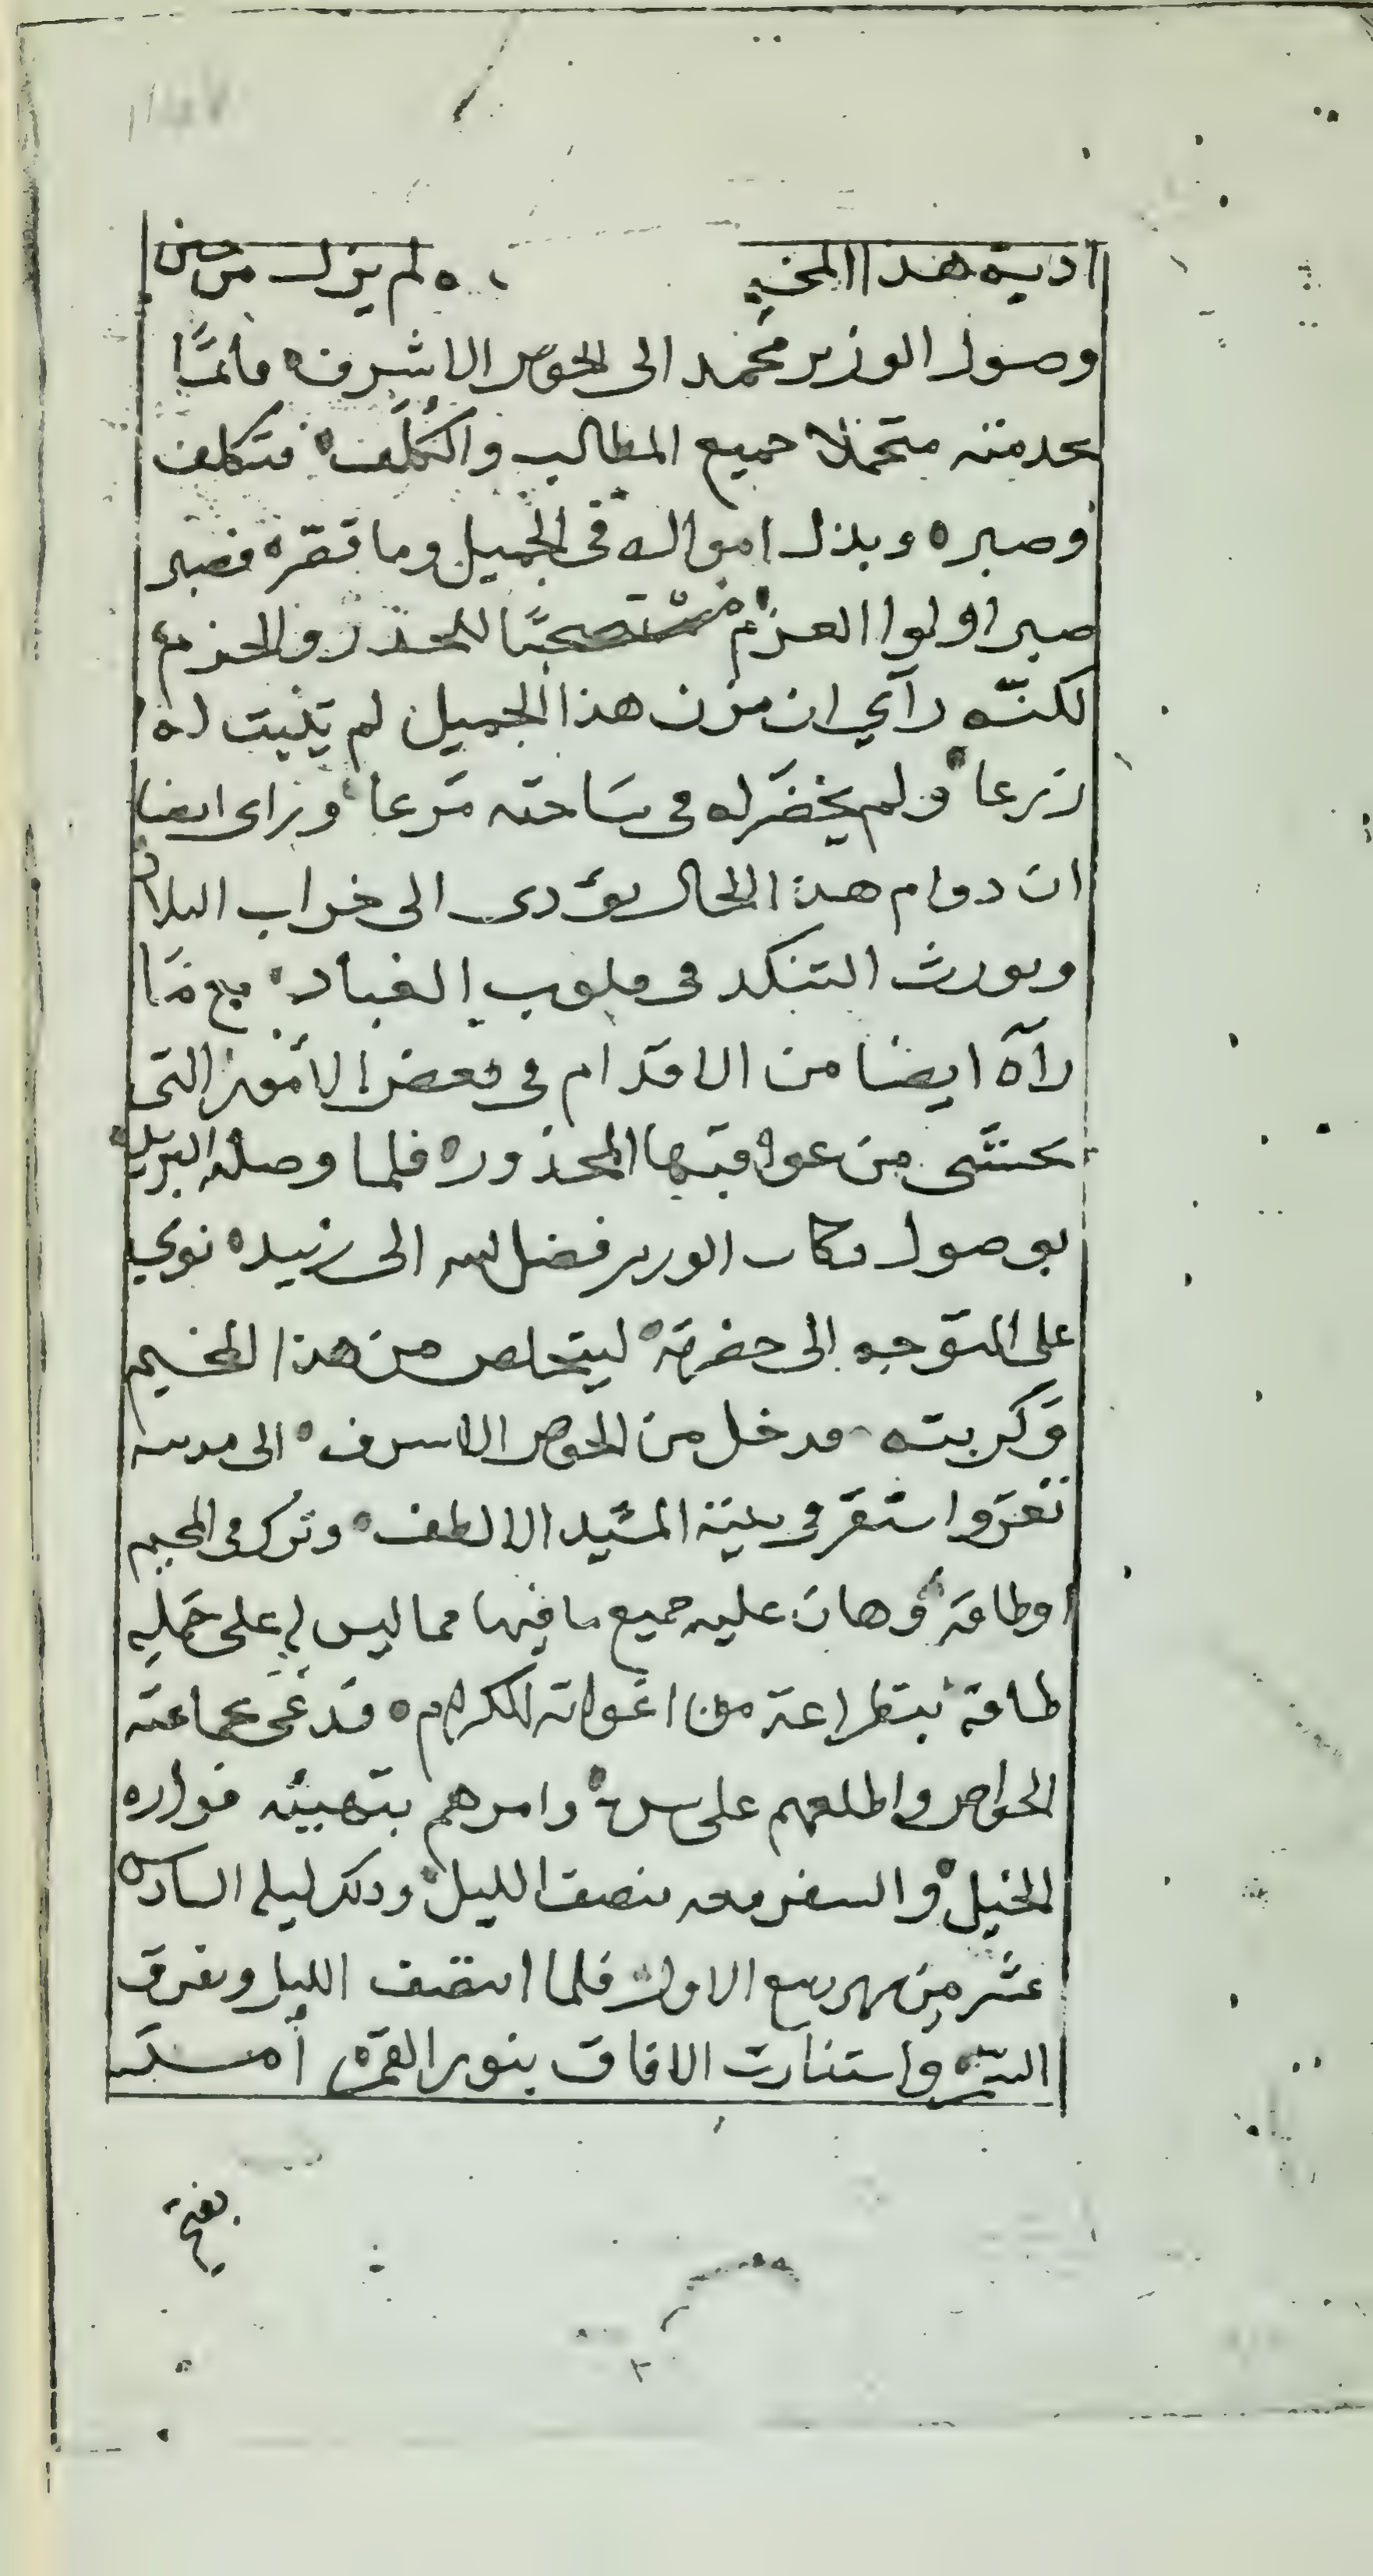 ادىىة هذا المخيم ولم يزل من حين
وصول الوزير محمد الى الحوض الاشرف قائمًا
بخدمته متحملا جميع المطالب والكُلَف فتكلف
وصبر ه وبذل امواله في الجميل وما قصّر ه فصبر
صبر اولوا العزم مستصحبًا للحذر والحزم ع
لكنّه رآي ان مزن هذا الجميل لم ينبت له
زرعا ولم يخضر له فى ساحته مرعا وراى ايضا
ان دوام هذا الحال يؤدى الى خراب البلاد
ويورث التنكد فى قلوب العباد مع ما
رآه ايضا من الاقدام في بعض الامور التى
يخشى من عواقبها المحذوره فلما وصله البريد
بوصول ركاب الوزير فضل الله الى زبيد ه نوي
على التوجه الى حضرته ليتخلص من هذا المخيم
وكربته فدخل من الحوض الاشرف الى مدينة
تعز واستقر فى بيته المشيد الالطف وترك فى المخيم
اوطاقه وهان عليه جميع ما فيها مما ليس له على حمله
طاقة من اغواته الكرام ه فدعى بجماعته
الخواص واطلعهم على سره وامرهم بتهيئه
الخيل والسفر معه نصف الليل وذلك ليلة السادس
عشر من شهر ربيع الاول فلما انتصف الليل وتفرق
واستنارت الافاق بنور القمر ه امسك
بفتح